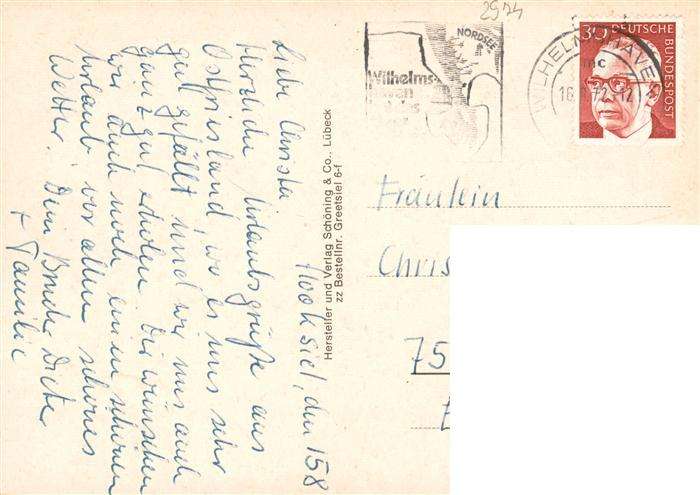 Hooksiel, den 15 8
Liebe Christa!
Herzliche Urlaubsgrüße aus
Ostfriesland, wo es uns sehr
gut gefällt und wir uns auch
ganz gut erholen. Dir wünschen
wir auch noch einen schönen
Urlaub vor allem schönes
Wetter! Dein Bruder Dieter
+ Familie
Hersteller und Verlag Schöning & Co., Lübeck
zz Bestellnr. Greetsiel 6-f
2974
NORDSEE
Wilhelms-
30
DEUTSCHE
BUNDESPOST
WILHELMSHAVEN
mc
16. 72-12
Fräulein
Chris
75